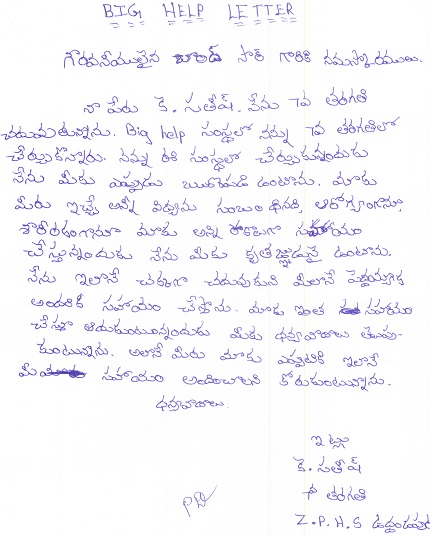 BIG HELP LETTER
గౌరవనీయులైన చాంద్ సార్ గారికి నమస్కారములు.
నా పేరు కె. సతీష్. నేను 7వ తరగతి
చదువుతున్నాను. Big help సంస్థలో నన్ను 7వ తరగతిలో
చేర్చుకొన్నారు. నన్ను ఈ సంస్థలో చేర్చుకున్నందుకు
నేను మీకు ఎప్పుడు ఋణపడి ఉంటాను. మాకు
మీరు ఇచ్చే అన్నీ విద్యను సంబంధినది, ఆరోగ్యంగాను,
శారీరకంగానూ మాకు అన్ని రకాలుగా సహాయం
చేస్తున్నందుకు నేను మీకు కృతజ్ఞుడునై ఉంటాను.
నేను ఇలానే చక్కగా చదువుకుని మీలానే పెద్దయ్యాక
అందరికీ సహాయం చేస్తాను. మాకు ఇంత సహాయం
చేస్తూ ఆదుకుంటున్నందుకు మీకు ధన్యవాదాలు తెలుపు-
కుంటున్నాను. అలానే మీరు మాకు ఎప్పటికీ ఇలానే
మీ సహాయం అందించాలని కోరుకుంటున్నాను.
ధన్యవాదాలు.
ఇట్లు
కె. సతీష్
7వ తరగతి
Z.P.H.S